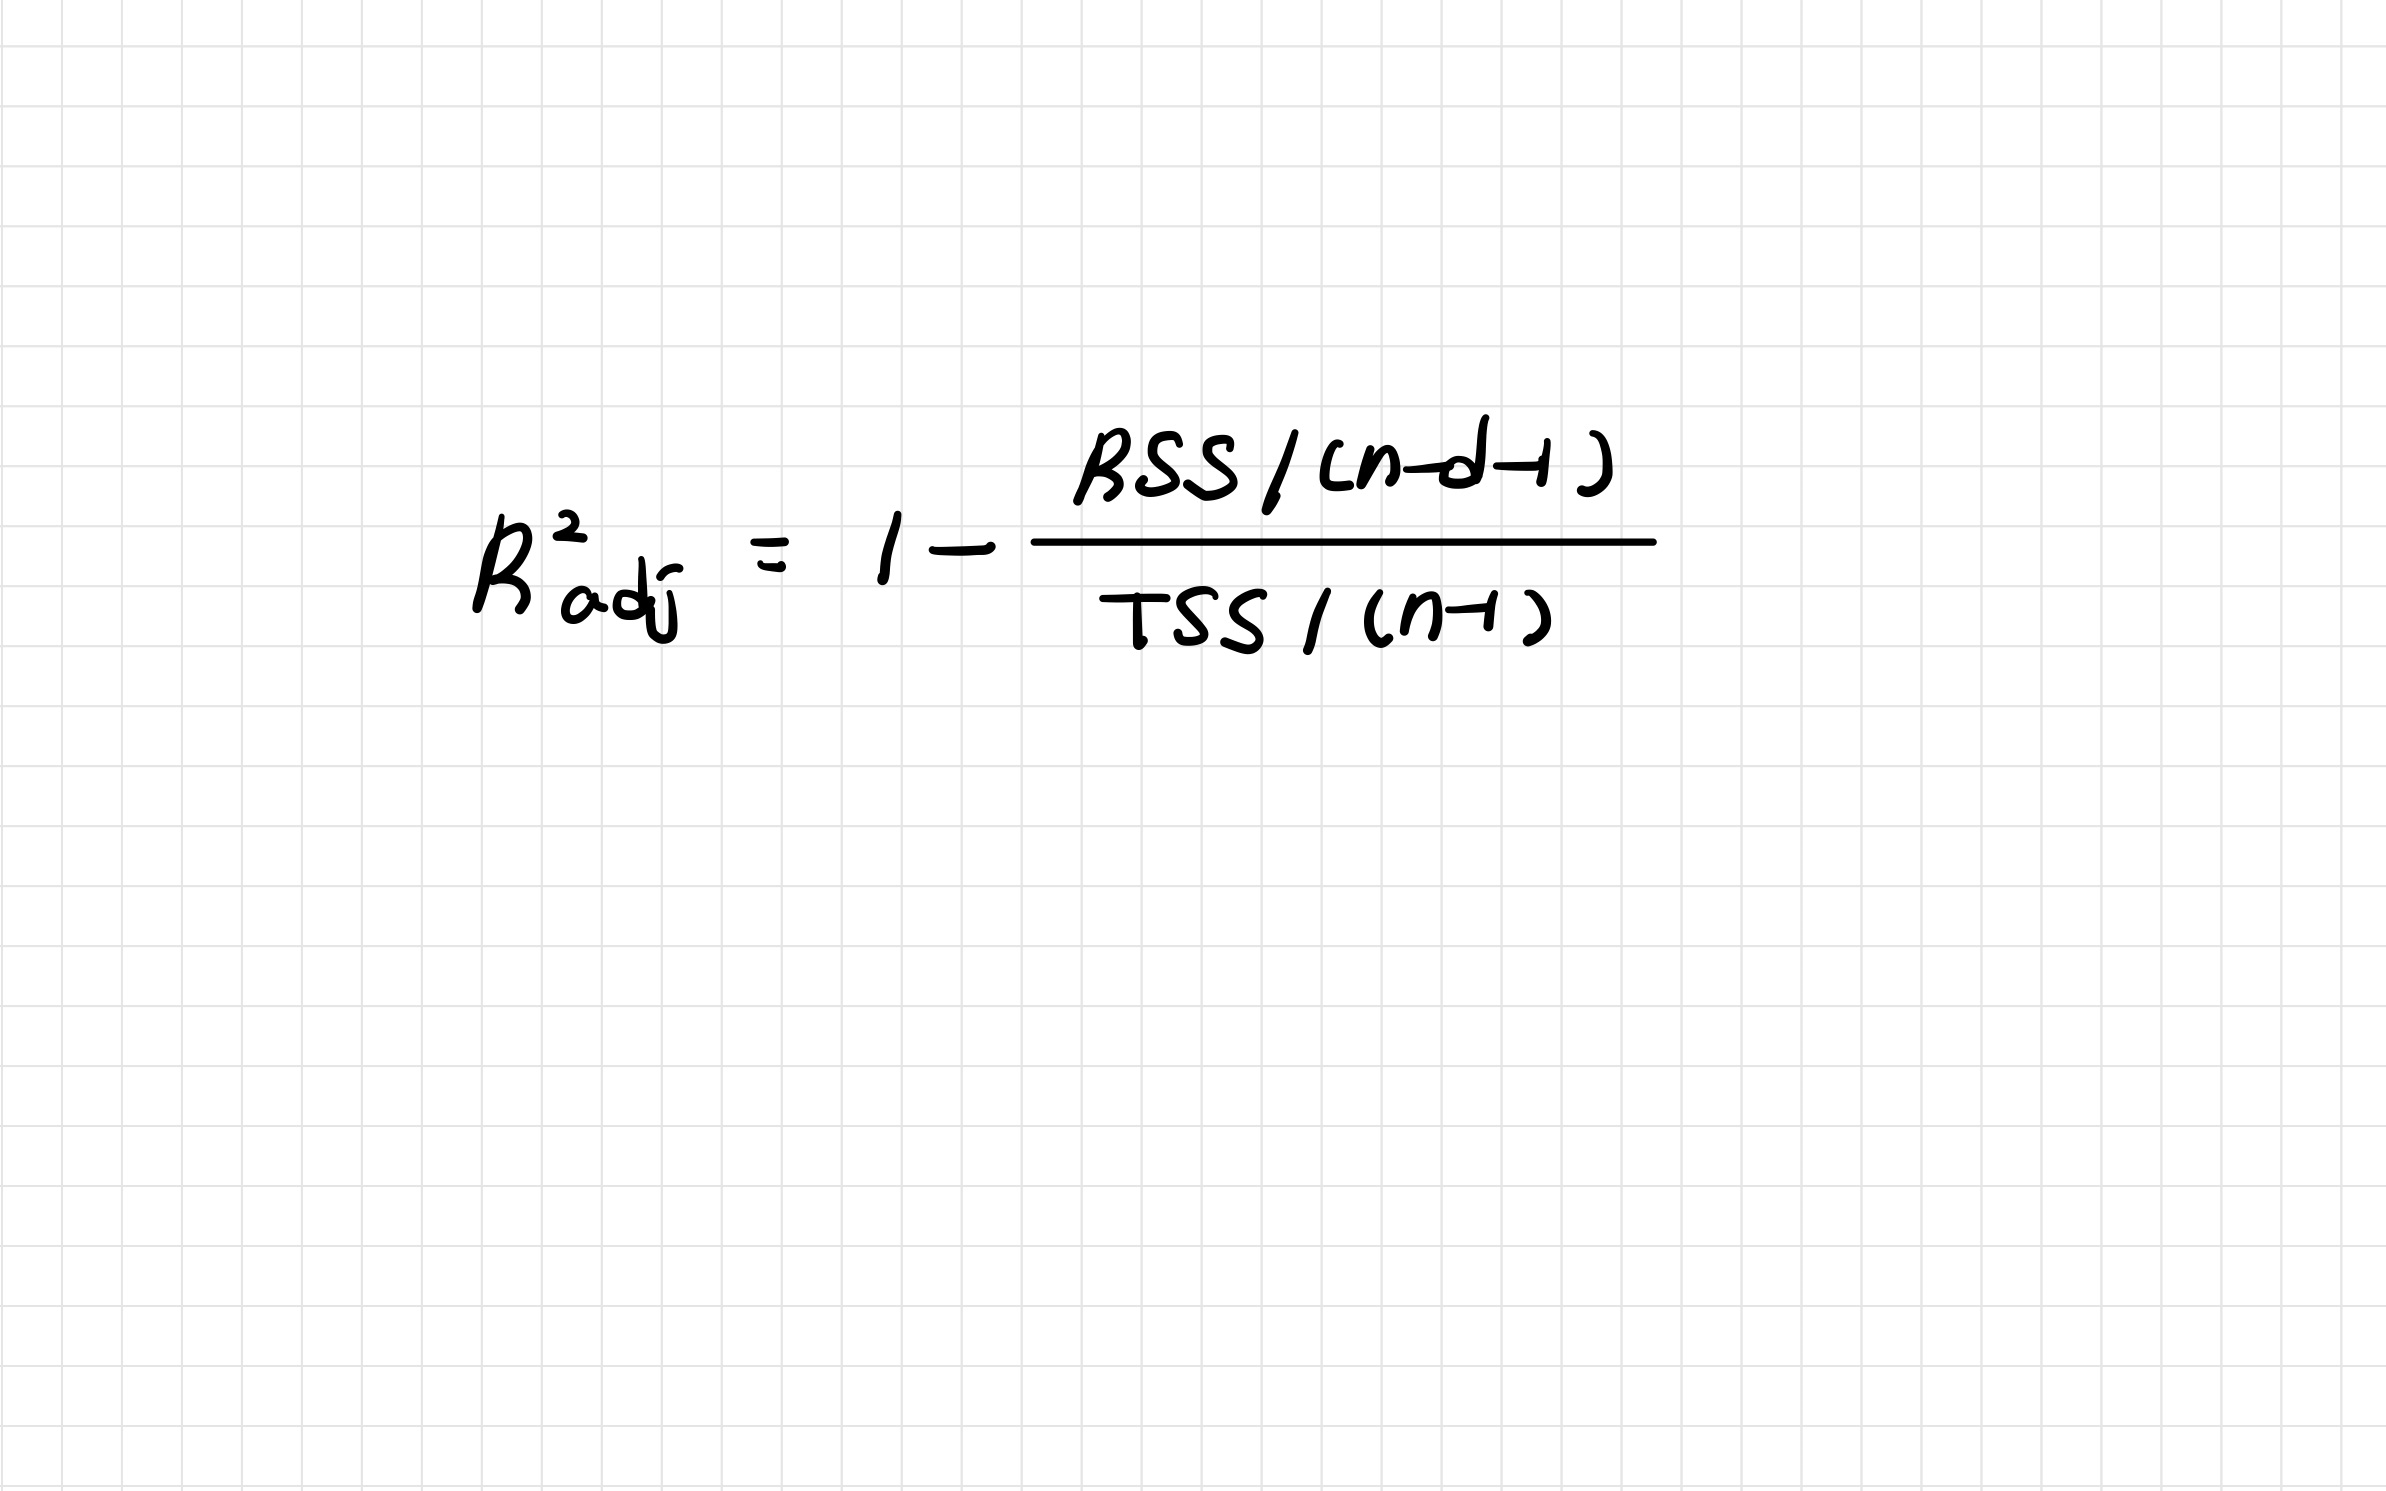 R²adj = 1 - RSS/(n-d-1) / TSS/(n-1)